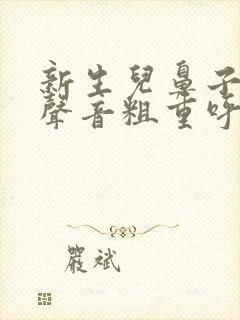 新生兒鼻子
聲音粗重呼
嚴斌